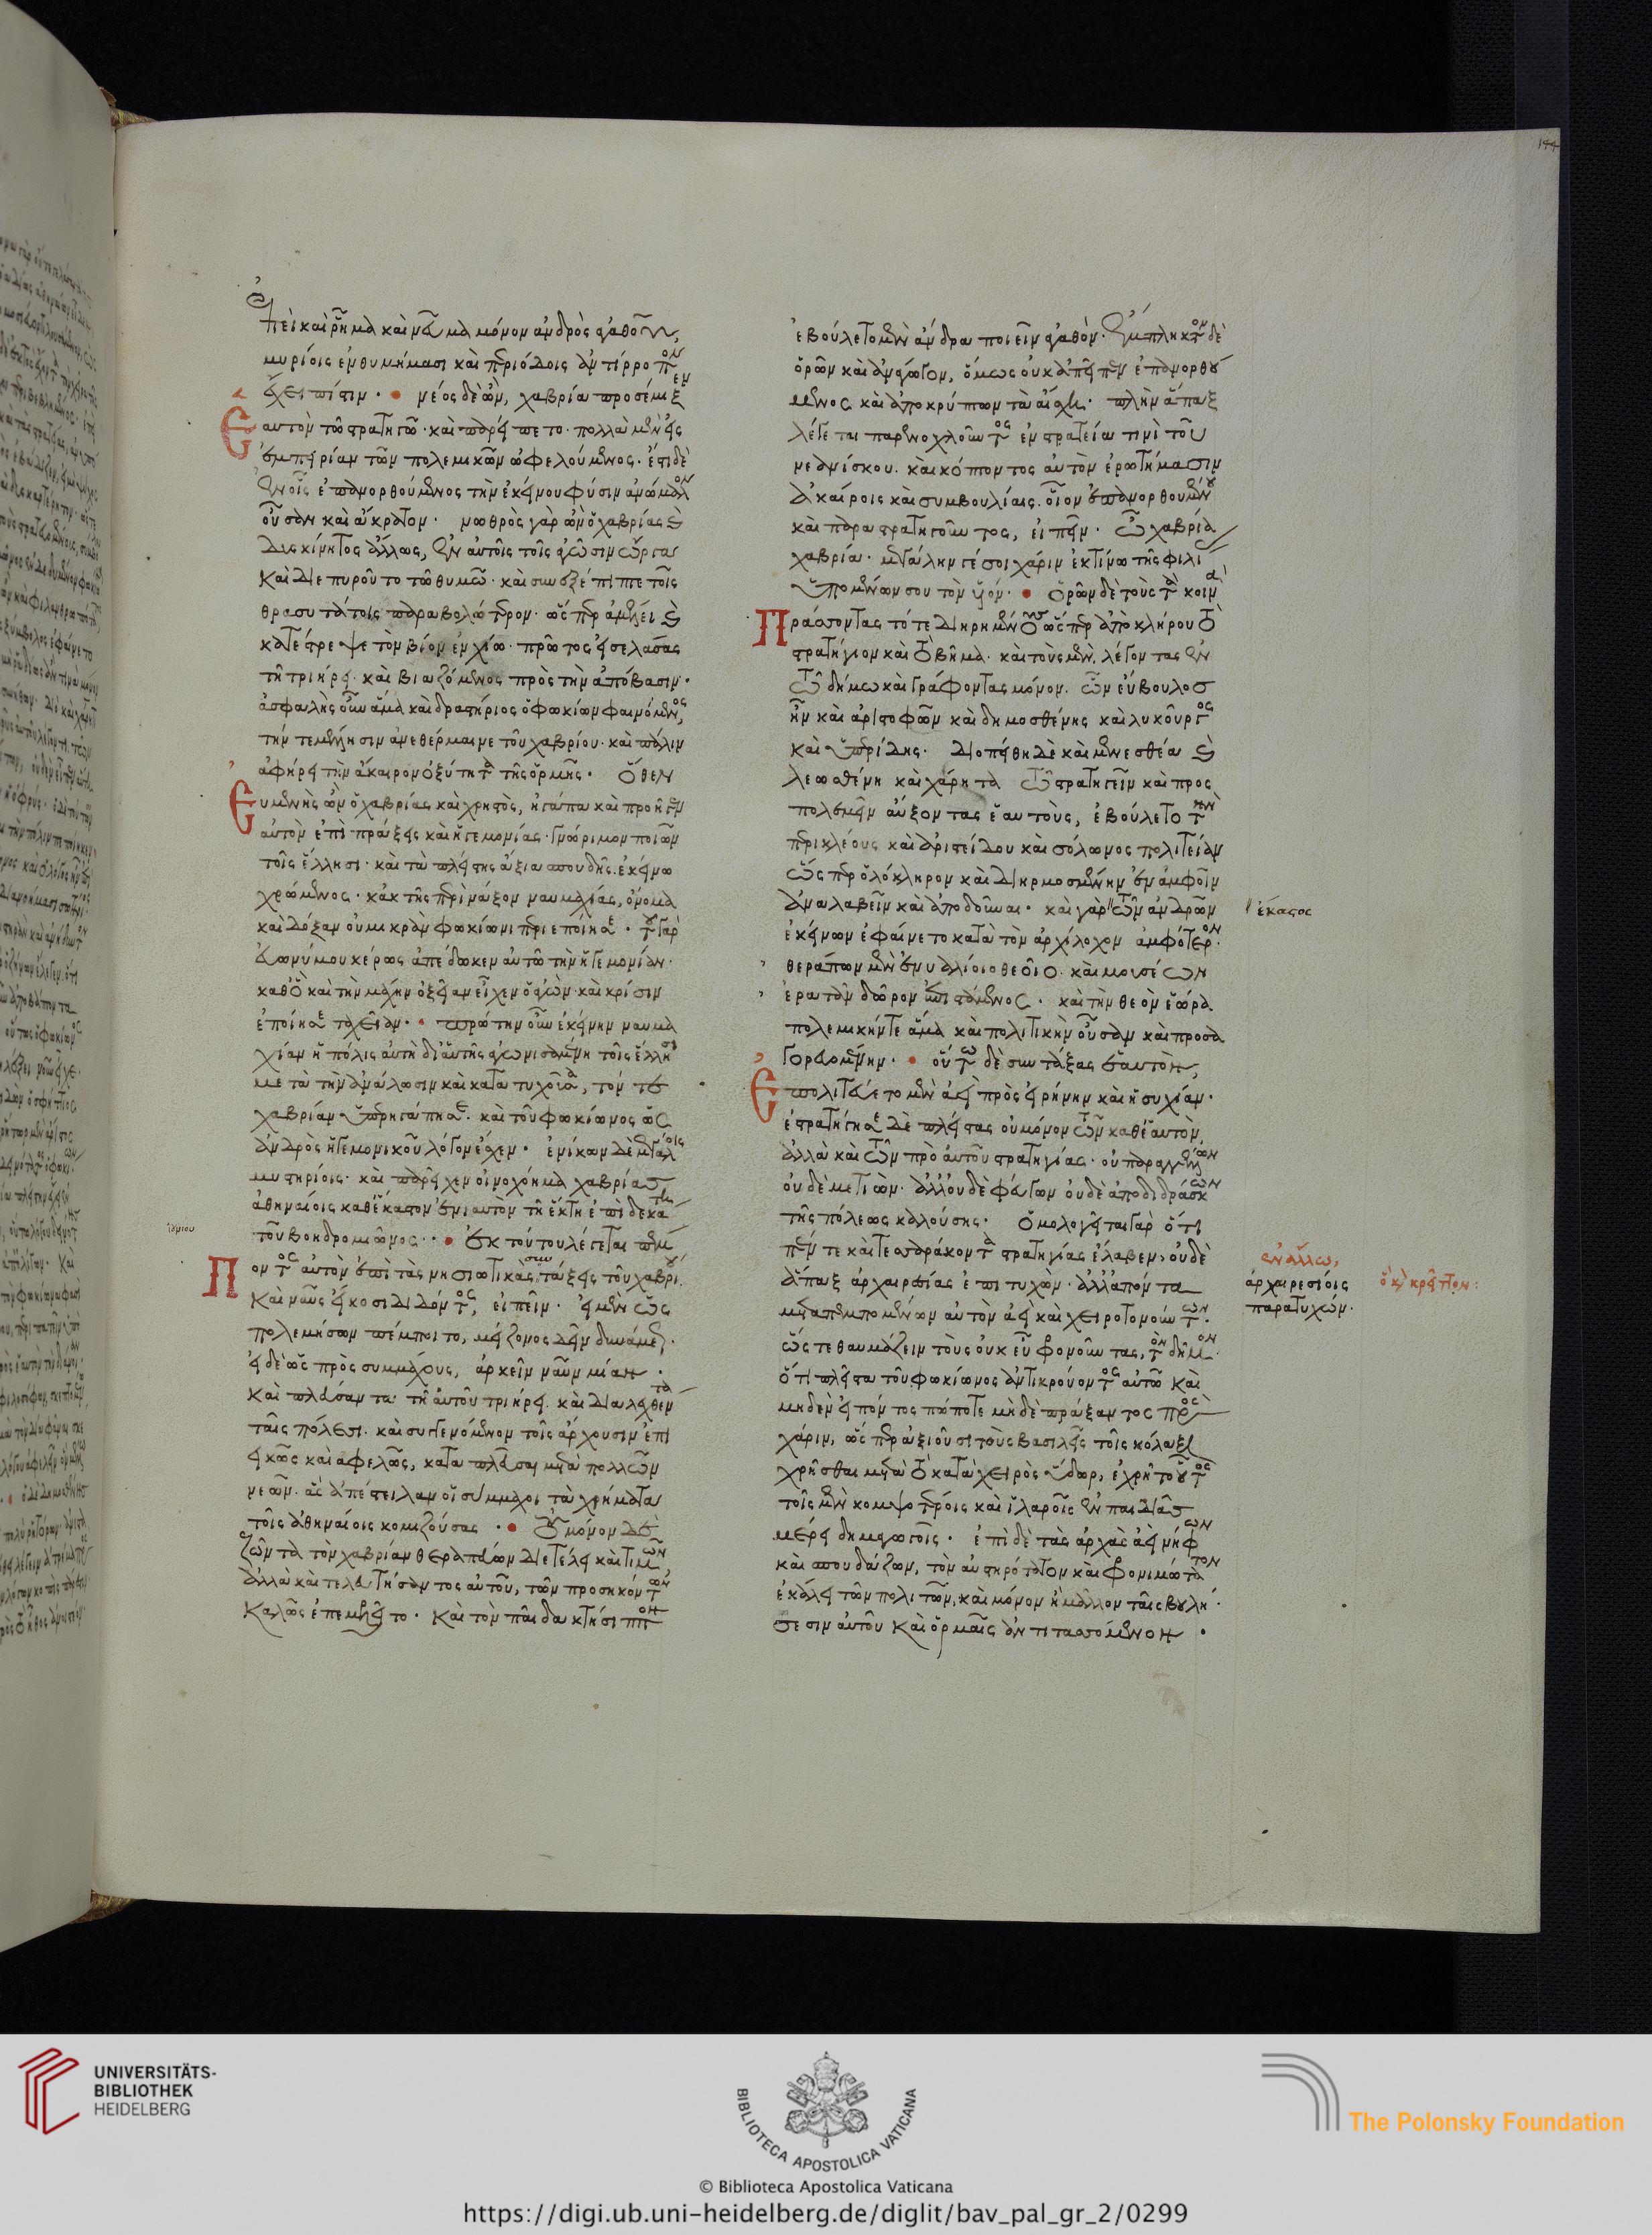 ἐπεὶ καὶ ῥῆμα καὶ νεῦμα μόνον ἀνδρὸς ἀγαθοῦ,
μυρίοις ἐνθυμήμασι καὶ περιόδοις ἀντίρροπον
ἔχει πίστιν · νέος δὲ ὢν, χαβρία προσέμιξεν
Ἑαυτὸν τῶ στρατηγῶ · καὶ παρείπετο · πολλὰ μὲν εἰς
ἐμπειρίαν τῶν πολεμικῶν ὠφελούμενος · ἔστι δὲ
ἐν οἷς ἐπανορθούμενος τὴν ἐκείνου φύσιν ἀνώμαλον
οὖσαν καὶ ἄκρατον · νωθρὸς γὰρ ὢν ὁ χαβρίας καὶ
δυσκίνητος ἄλλως, ἐν αὐτοῖς τοῖς ἀγῶσιν ὤργα
καὶ διεπυροῦτο τῶ θυμῶ · καὶ συνεξέπιπτε τοῖς
θρασυτάτοις παραβολώτερον · ὥσπερ ἀμέλει καὶ
κατέστρεψε τὸν βίον ἐν χίω · πρῶτος εἰσελάσας
τῆ τριήρει · καὶ βιαζόμενος πρὸς τὴν ἀπόβασιν ·
ἀσφαλὴς οὖν ἅμα καὶ δραστήριος ὁ φωκίων φαινόμενος,
τήν τε μέλλησιν ἀνεθέρμαινε τοῦ χαβρίου · καὶ πάλιν
ἀφήρει τὴν ἄκαιρον ὀξύτητα τῆς ὁρμῆς · ὅθεν
Εὐμενὴς ὢν ὁ χαβρίας καὶ χρηστὸς, ἠγάπα καὶ προῆγεν
αὐτὸν ἐπὶ πράξεις καὶ ἡγεμονίας · γνώριμον ποιῶν
τοῖς ἕλλησι · καὶ τὰ πλεῖστης ἄξια σπουδῆς ἐκείνω
χρώμενος · κἀκ τῆς περὶ νάξον ναυμαχίας, ὄνομα
καὶ δόξαν οὐ μικρὰν φωκίωνι περιεποίησε · τοῦ γὰρ
εὐωνύμου κέρως ἀπέδωκεν αὐτῶ τὴν ἡγεμονίαν ·
καθ᾽ ὃ καὶ τὴν μάχην ὀξεῖαν εἶχεν ὁ ἀγὼν · καὶ κρίσιν
ἐποίησε ταχεῖαν · πρώτην οὖν ἐκείνην ναυμα
χίαν ἡ πόλις αὐτὴ δι᾽ αὑτῆς ἀγωνισαμένη τοῖς ἕλλησι
μετὰ τὴν ἀνάλωσιν καὶ κατατυχοῦσα, τόν τε
χαβρίαν ὑπερηγάπησε · καὶ τοῦ φωκίωνος ὡς
ἀνδρὸς ἡγεμονικοῦ λόγον ἔσχεν · ἐνίκων δὲ μεγάλοις
μυστηρίοις · καὶ παρεῖχεν οἰνοχόημα χαβρίας
ἀθηναίοις καθ᾽ ἕκαστον ἐνιαυτὸν τῆ ἕκτη ἐπὶ δεκάτης
τοῦ βοηδρομιῶνος · ἐκ τούτου λέγεται πέμ
Ποντος αὐτὸν ἐπὶ τὰς νησιωτικὰς συντάξεις τοῦ χαβρίου
καὶ ναῦς εἴκοσι διδόντος, εἰπεῖν · εἰ μὲν ὡς
πολεμήσων πέμποιτο, μείζονος δεῖν δυνάμεως ·
εἰ δὲ ὡς πρὸς συμμάχους, ἀρκεῖν ναῦν μίαν ·
καὶ πλεύσαντα τῆ αὑτοῦ τριήρει · καὶ διαλεχθέντα
ταῖς πόλεσι · καὶ συγγενόμενον τοῖς ἄρχουσιν ἐπι
εικῶς καὶ ἀφελῶς, καταπλεῦσαι μετὰ πολλῶν
νεῶν · ἃς ἀπέστειλαν οἱ σύμμαχοι τὰ χρήματα
τοῖς ἀθηναίοις κομιζούσας · οὐ μόνον δὲ
ζῶντα τὸν χαβρίαν θεραπεύων διετέλει καὶ τιμῶν
ἀλλὰ καὶ τελευτήσαντος αὐτοῦ, τῶν προσηκόντων
καλῶς ἐπεμελεῖτο · καὶ τὸν παῖδα κτήσιππον
ἐβούλετο μὲν ἄνδρα ποιεῖν ἀγαθόν · ἔμπληκτον δὲ
ὁρῶν καὶ ἀνάγωγον, ὅμως οὐκ ἀπεῖπεν ἐπανορθού
μενος καὶ ἀποκρύπτων τὰ αἴσχη · πλὴν ἅπαξ
λέγεται παρενοχλοῦντος ἐν στρατεία τινὶ τοῦ
νεανίσκου · καὶ κόπτοντος αὐτὸν ἐρωτήμασιν
ἀκαίροις καὶ συμβουλίαις · οἷον ἐπανορθουμένου
καὶ παραστρατηγοῦντος, εἰπεῖν · ὦ χαβρία
χαβρία · μεγάλην γέ σοι χάριν ἐκτίνω τῆς φιλίας
ὑπομένων σου τὸν υἱόν · ὁρῶν δὲ τοὺς τὰ κοινὰ
Πράσσοντας τότε διῃρημένους ὥσπερ ἀπὸ κλήρου τὸ
στρατήγιον καὶ τὸ βῆμα · καὶ τοὺς μὲν, λέγοντας ἐν
τῶ δήμω καὶ γράφοντας μόνον · ὧν εὔβουλος
ἦν καὶ ἀριστοφῶν καὶ δημοσθένης καὶ λυκοῦργος
καὶ ὑπερίδης · διοπείθη δὲ καὶ μενεσθέα καὶ
λεωσθένη καὶ χάρητα τῶ στρατηγεῖν καὶ προς
πολεμεῖν αὔξοντας ἑαυτοὺς, ἐβούλετο τὴν
περικλέους καὶ ἀριστείδου καὶ σόλωνος πολιτείαν
ὥσπερ ὁλόκληρον καὶ διηρμοσμένην ἐν ἀμφοῖν
ἀναλαβεῖν καὶ ἀποδοῦναι · καὶ γὰρ τῶν ἀνδρῶν
ἕκαστος
ἐκείνων ἐφαίνετο κατὰ τὸν ἀρχίλοχον ἀμφότερον ·
θεράπων μὲν ἐνυαλίοιο θεοῖο · καὶ μουσέων
ἐρατὰν δῶρον ἐπιστάμενος · καὶ τὴν θεὸν ἑώρα
πολεμικήν τε ἅμα καὶ πολιτικὴν οὖσαν καὶ προσα
γορευομένην · οὕτω δὲ συντάξας ἑαυτὸν,
Ἐπολιτεύετο μὲν ἀεὶ πρὸς εἰρήνην καὶ ἡσυχίαν ·
ἐστρατήγησε δὲ πλείστας οὐ μόνον τῶν καθ᾽ ἑαυτὸν,
ἀλλὰ καὶ τῶν πρὸ αὐτοῦ στρατηγίας · οὐ παραγγέλλων
οὐδὲ μετιὼν · ἀλλ᾽ οὐδὲ φεύγων οὐδὲ ἀποδιδράσκων
τῆς πόλεως καλούσης · ὁμολογεῖται γὰρ ὅτι
πέντε καὶ τεσσαράκοντα στρατηγίας ἔλαβεν, οὐδὲ
ἅπαξ ἀρχαιρεσίας ἐπιτυχὼν · ἀλλ᾽ ἀπόντα
ἐν ἄλλω,
ἀρχαιρεσίοις
παρατυχών ·
ὃ καὶ κρεῖττον :
μεταπεμπομένων αὐτὸν ἀεὶ καὶ χειροτονούντων ·
ὥστε θαυμάζειν τοὺς οὐκ εὖ φρονοῦντας, τὸν δῆμον ·
ὅτι πλεῖστα τοῦ φωκίωνος ἀντικρούοντος αὐτῶ καὶ
μηδὲν εἰπόντος πώποτε μὴ δὲ πράξαντος πρὸς
χάριν, ὥσπερ ἀξιοῦσι τοὺς βασιλεῖς τοῖς κόλαξι
χρῆσθαι μετὰ τὸ κατὰ χειρὸς ὕδωρ, ἐχρῆτο οὗτος
τοῖς μὲν κομψοτέροις καὶ ἱλαροῖς ἐν παιδιᾶς
μέρει δημαγωγοῖς · ἐπὶ δὲ τὰς ἀρχὰς ἀεὶ νήφων
καὶ σπουδάζων, τὸν αὐστηρότατον καὶ φρονιμώτατον
ἐκάλει τῶν πολιτῶν, καὶ μόνον ἢ μᾶλλον ταῖς βουλή
σεσιν αὐτοῦ καὶ ὁρμαῖς ἀντιτασσόμενον ·
UNIVERSITÄTS-
BIBLIOTHEK
HEIDELBERG
BIBLIOTECA APOSTOLICA VATICANA
The Polonsky Foundation
© Biblioteca Apostolica Vaticana
https://digi.ub.uni-heidelberg.de/diglit/bav_pal_gr_2/0299